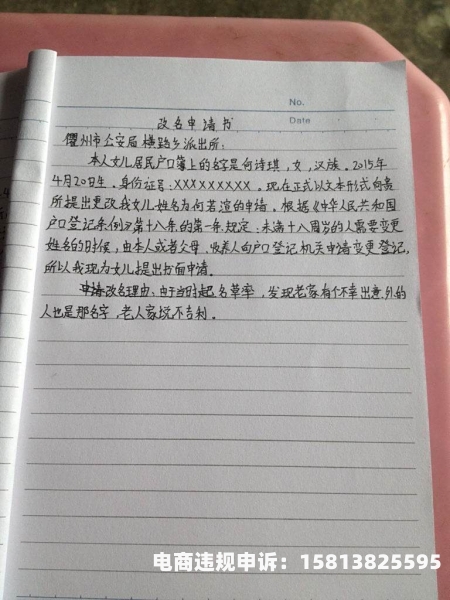 No.
Date
改名申请书
衢州市公安局横路乡派出所:
本人女儿居民户口簿上的名字是何诗琪,女,汉族。2015年
4月20日生,身份证号:XXXXXXXXX。现在正式以文本形式向贵
所提出更改我女儿姓名为何若渲的申请。根据《中华人民共和国
户口登记条例》第十八条的第一条规定:未满十八周岁的人需要变更
姓名的时候,由本人或者父母、收养人向户口登记机关申请变更登记,
所以我现为女儿提出书面申请。
申请改名理由:由于当时起名草率,发现老家有个不幸出意外的
人也是那名字,老人家说不吉利。
电商违规申诉:15813825595